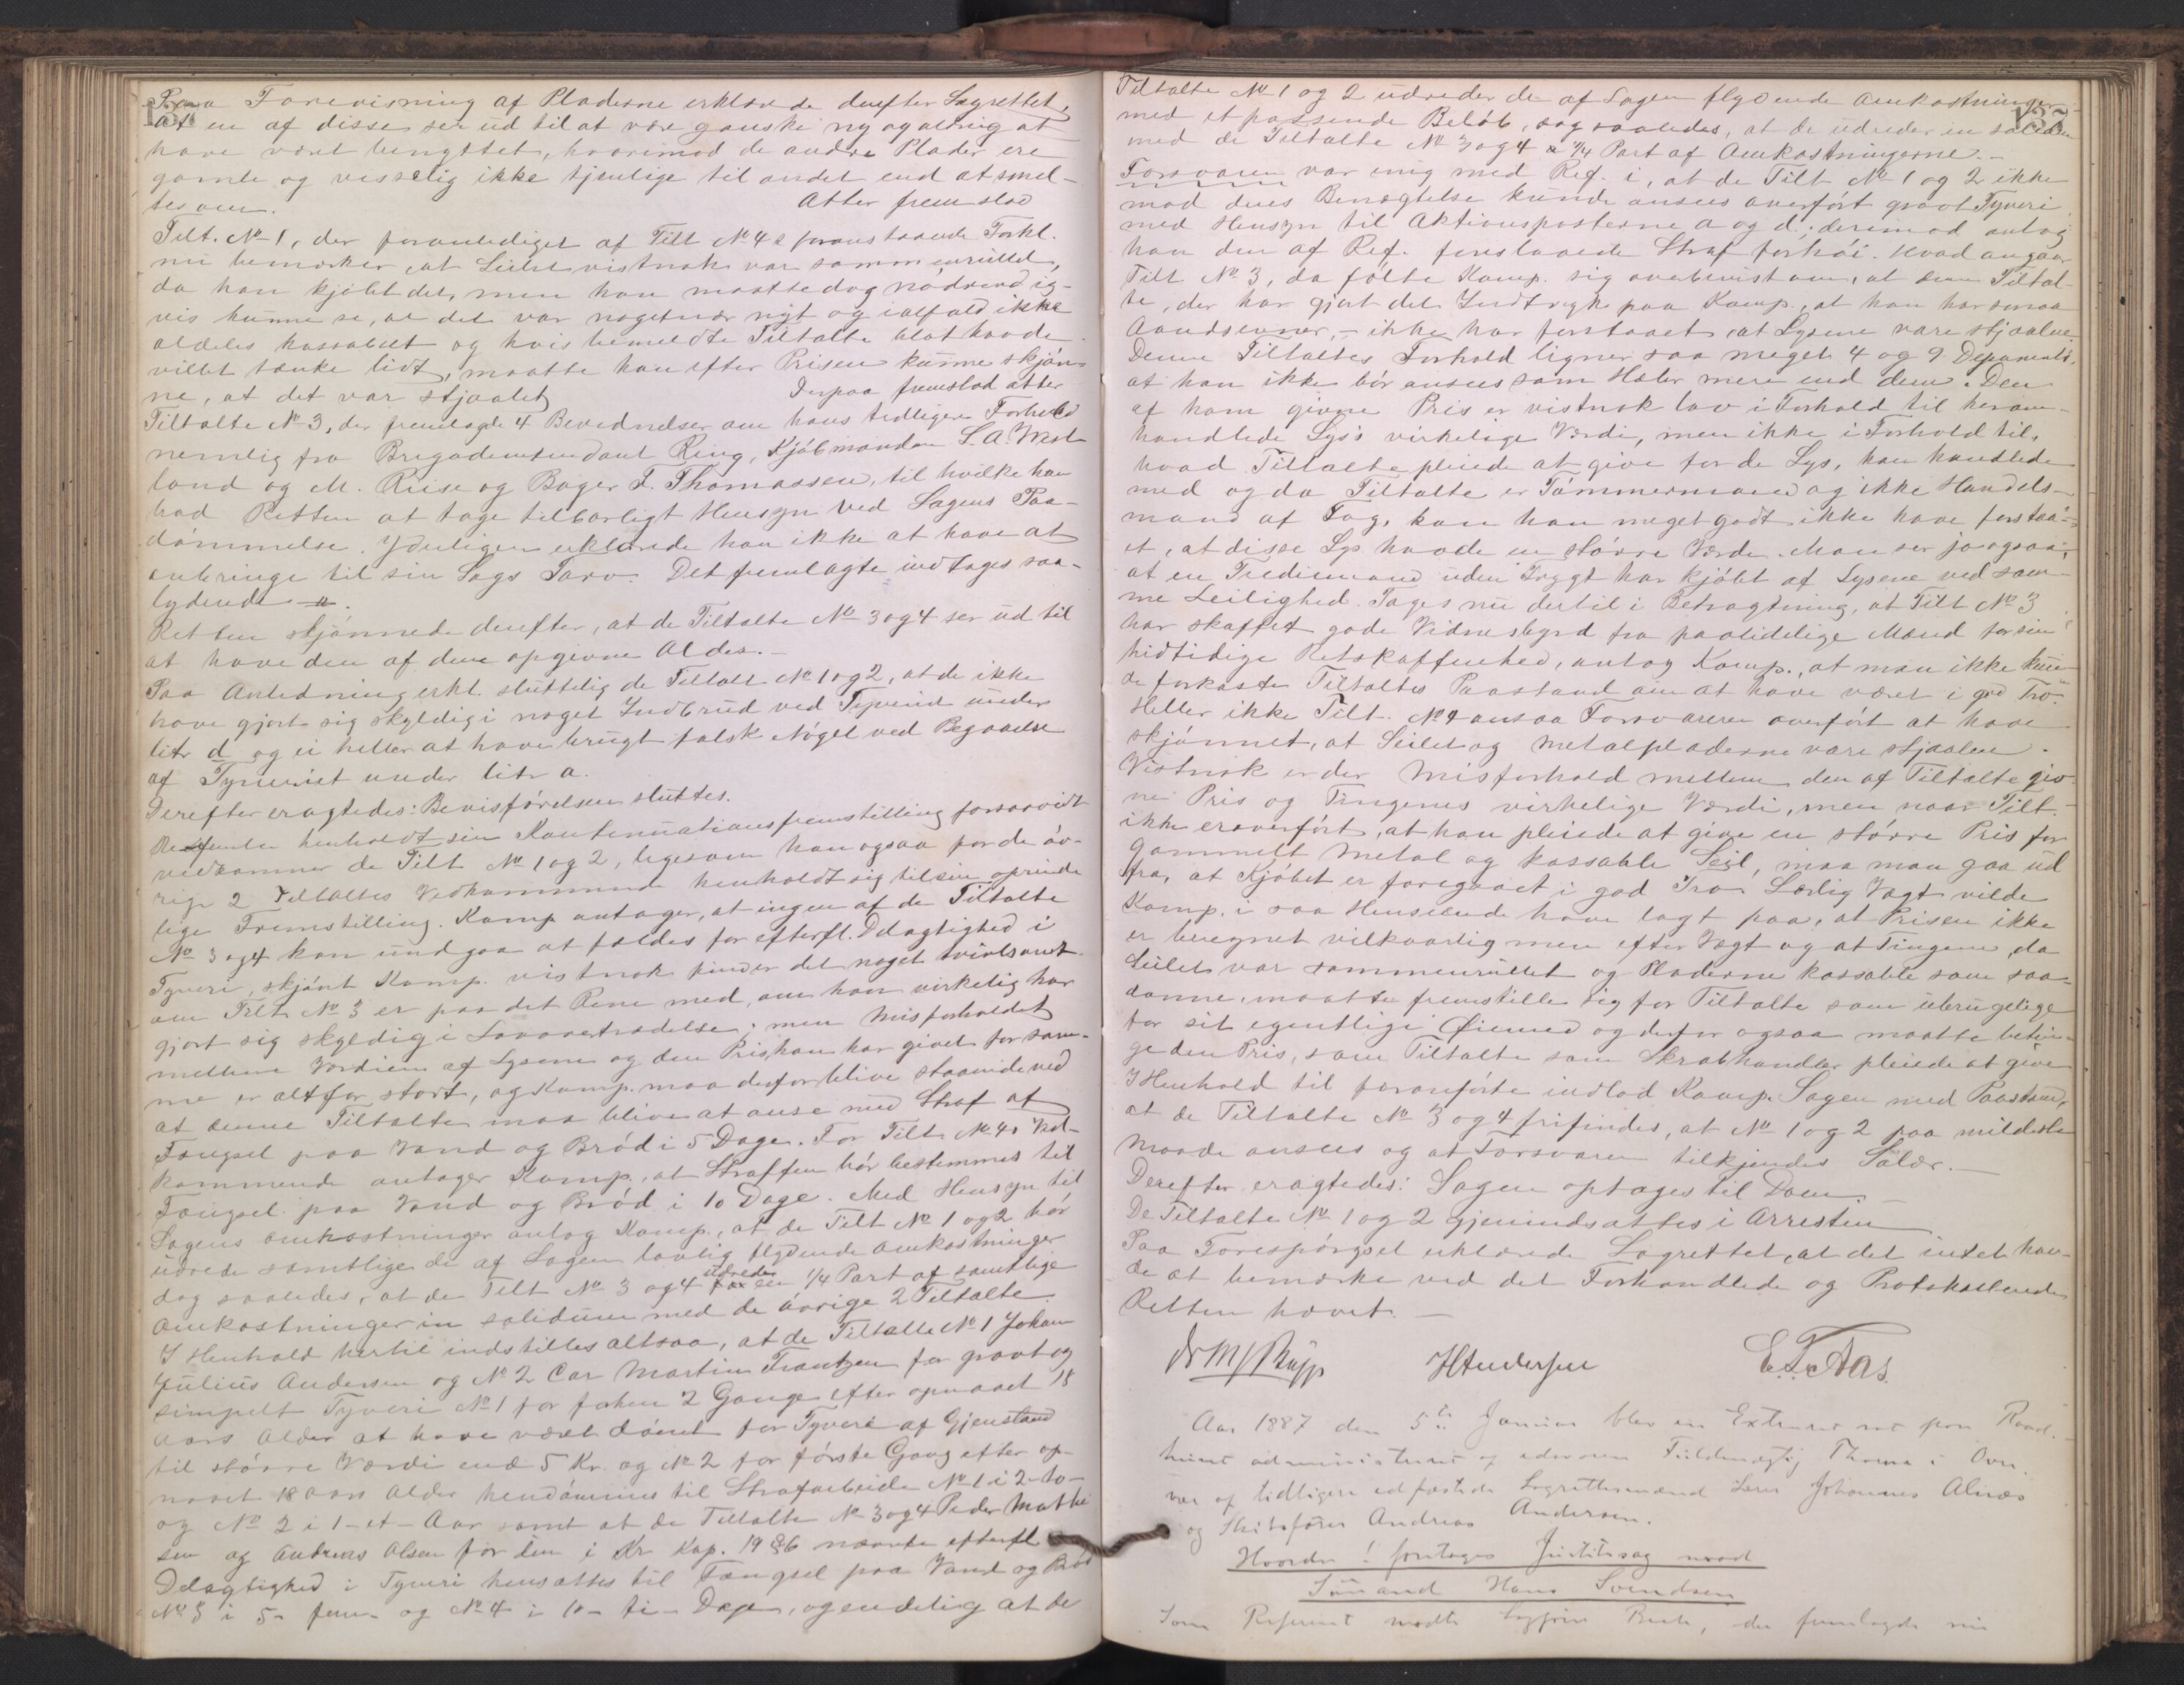 Paa Forevisning af Pladerne erklærede derefter Lagrettet,
at en af disse ser ud til at være ganske ny og aldrig at
have været benyttet, hvorimod de andre Plader ere
gamle og visselig ikke tjenlige til andet end at smel-
tes om. Atter fremstod
Tilt. No 1, der foranlediget af Tilt No 4s foranstaaende Forkl.
nu bemærker, at Seilet vistnok var sammenrullet,
da han kjøbte det, men han maatte dog nødvendig-
vis kunne se, at det var nogetnær nyt og ialfald ikke
aldeles kassabelt og hvis bemeldte Tiltalte blot havde
villet tænke lidt, maatte han efter Prisen kunne skjøn-
ne, at det var stjaalet. Derpaa fremstod atter
Tiltalte No 3, der fremlagde 4 Bevidnelser om hans tidligere Forhold
nemlig fra Brigadeintendant Ring, Kjøbmændene L. A. West
land og M. Riise og Bager F. Thomassen, til hvilke han
bad Retten at tage tilbørligt Hensyn ved Sagens Paa-
dømmelse. Yderligere erklærede han ikke at have at
anbringe til sin Sags Tarv. Det fremlagte indtages saa-
lydende
Retten skjønnede derefter, at de Tiltalte No 3 og 4 ser ud til
at have den af dem opgivne Alder.
Paa Anledning erkl. sluttelig de Tiltalte No 1 og 2, at de ikke
have gjort sig skyldig i noget Indbrud ved Tyveriet under
litr d og ei heller at have brugt falsk Nøgel ved Begaaelse
af Tyveriet under litr a.
Derefter eragtedes: Bevisførelsen sluttes.
Referenten henholdt sin Kontinuationsfremstilling forsaavidt
vedkommer de Tilt No 1 og 2, ligesom han ogsaa for de øv-
rige 2 Tiltaltes Vedkommende henholdt sig til sin oprinde
lige Fremstilling. Komp antager, at ingen af de Tiltalte
No 3 og 4 kan undgaa at fældes for efterfl. Delagtighed i
Tyveri, skjønt Komp. vistnok finder det noget tvivlsomt
om Tilt No 3 er paa det Rene med, om han virkelig har
gjort sig skyldig i Lovovertrædelse; men Misforholdet
mellem Værdien af Lysene og den Pris, han har givet for sam-
me er altfor stort, og Komp. maa derfor blive staaende ved
at denne Tiltalte maa blive at anse med Straf af
Fængsel paa Vand og Brød i 5 Dage. For Tilt No 4s Ved-
kommende antager Komp., at Straffen bør bestemmes til
Fængsel paa Vand og Brød i 10 Dage. Med Hensyn til
Sagens omkostninger antog Komp., at de Tilt No 1 og 2 bør
udrede samtlige de af Sagen lovlig flydende Omkostninger
dog saaledes, at de Tilt No 3 og 4 udreder en 1/4 Part af samtlige
Omkostninger in solidum med de øvrige 2 Tiltalte.
I Henhold hertil indstilles altsaa, at de Tiltalte No 1 Johan
Julius Andersen og No 2 Carl Martin Frantzen for grovt og
simpelt Tyveri No 1 for forhen 2 Gange efter opnaaet 18
Aars Alder at have været dømt for Tyveri af Gjenstand
til større Værdi end 5 Kr. og No 2 for første Gang efter op-
naaet 18 Aars Alder hendømmes til Strafarbeide No 1 i 2-to-
og No 2 i 1-et-Aar samt at de Tiltalte No 3 og 4 Peder Mathi
sen og Andreas Olsen for den i Kr Kap. 19 § 6 nævnte efterfl
Delagtighed i Tyveri hensættes til Fængsel paa Vand og Brød
No 3 i 5- fem- og No 4 i 10- ti- Dage, og endelig at de
Tiltalte No 1 og 2 udreder de af Sagen flydende Omkostninger
med et passende Beløb, dog saaledes, at de udreder in solidum
med de Tiltalte No 3 og 4 1/4 Part af Omkostningerne.
Forsvaren var enig med Ref. i, at de Tilt No 1 og 2 ikke
mod deres Benægtelse kunde ansees overført grovt Tyveri
med Hensyn til Aktionsposterne a og d; derimod antog
han den af Ref. foreslaaede Straf forhøi. Hvad angaar
Tilt No 3, da følte Komp. sig overbevist om, at denne Tiltal-
te, der har gjort det Indtryk paa Komp., at han har smaa
Aandsevner, - ikke har forstaaet, at Lysene vare stjaalne
Denne Tiltaltes Forhold ligner saa meget 4 og 9 Deponents,
at han ikke bør ansees som Hæler mere end dem. Den
af ham givne Pris er vistnok lav i Forhold til heram-
handlede Lys's virkelige Værdi, men ikke i Forhold til,
hvad Tiltalte pleiede at give for de Lys, han handlede
med og da Tiltalte er Tømmermand og ikke Handels-
mand af Fag, kan han meget godt ikke have forstaa-
et, at disse Lys havde en større Værdi. Man ser jo ogsaa,
at en Trediemand uden Frygt har kjøbt af Lysene ved sam-
me Leilighed. Tages nu dertil i Betragtning, at Tilt No 3
har skaffet gode Vidnesbyrd fra paalidelige Mænd for sin
hidtidige Retskaffenhed, antog Komp., at man ikke kun-
de forkaste Tiltaltes Paastand om at have været i god Tro.
Heller ikke Tilt. No 4 ansaa Forsvareren overført at have
skjønnet, at Seilet og Metalpladerne vare stjaalne.
Vistnok er der Misforhold mellem den af Tiltalte giv-
ne Pris og Tingenes virkelige Værdi, men naar Tilt.
ikke er overført, at han pleiede at give en større Pris for
gammelt Metal og kassable Seil, maa man gaa ud
fra, at Kjøbet er foregaaet i god Tro. Særlig Vægt vilde
Komp. i saa Henseende have lagt paa, at Prisen ikke
er beregnet vilkaarlig men efter Vægt og at Tingene, da
Seilet var sammenrullet og Pladerne kassable som saa-
danne, maatte fremstille sig for Tiltalte som ubrugelige
for sit egentlige Øiemed og derfor ogsaa maatte betin-
ge den Pris, som Tiltalte som Skrabhandler pleiede at give
I Henhold til foranførte indlod Komp. Sagen med Paastand,
at de Tiltalte No 3 og 4 frifindes, at No 1 og 2 paa mildeste
Maade ansees og at Forsvaren tilkjendes Salær.
Derefter eragtedes: Sagen optages til Dom.
De Tiltalte No 1 og 2 gjenindsattes i Arresten
Paa Forespørgsel erklærede Lagrettet, at det intet hav-
de at bemærke ved det Forhandlede og Protokollerede
Retten hævet.
HAndersen E. F. Aas.
Aar 1887 den 5te Januar blev en Extraret sat paa Raad-
huset administreret af edsvoren Fuldmægtig Thoma i Over
vær af tidligere edfæstede Lagrettesmænd Lærer Johannes Alnæs
og Skibsfører Andreas Andersen.
Hvorda! foretoges Justitssag mod
Sømand Hans Svendsen
Som Referent mødte Sagfører, der fremlagde sin